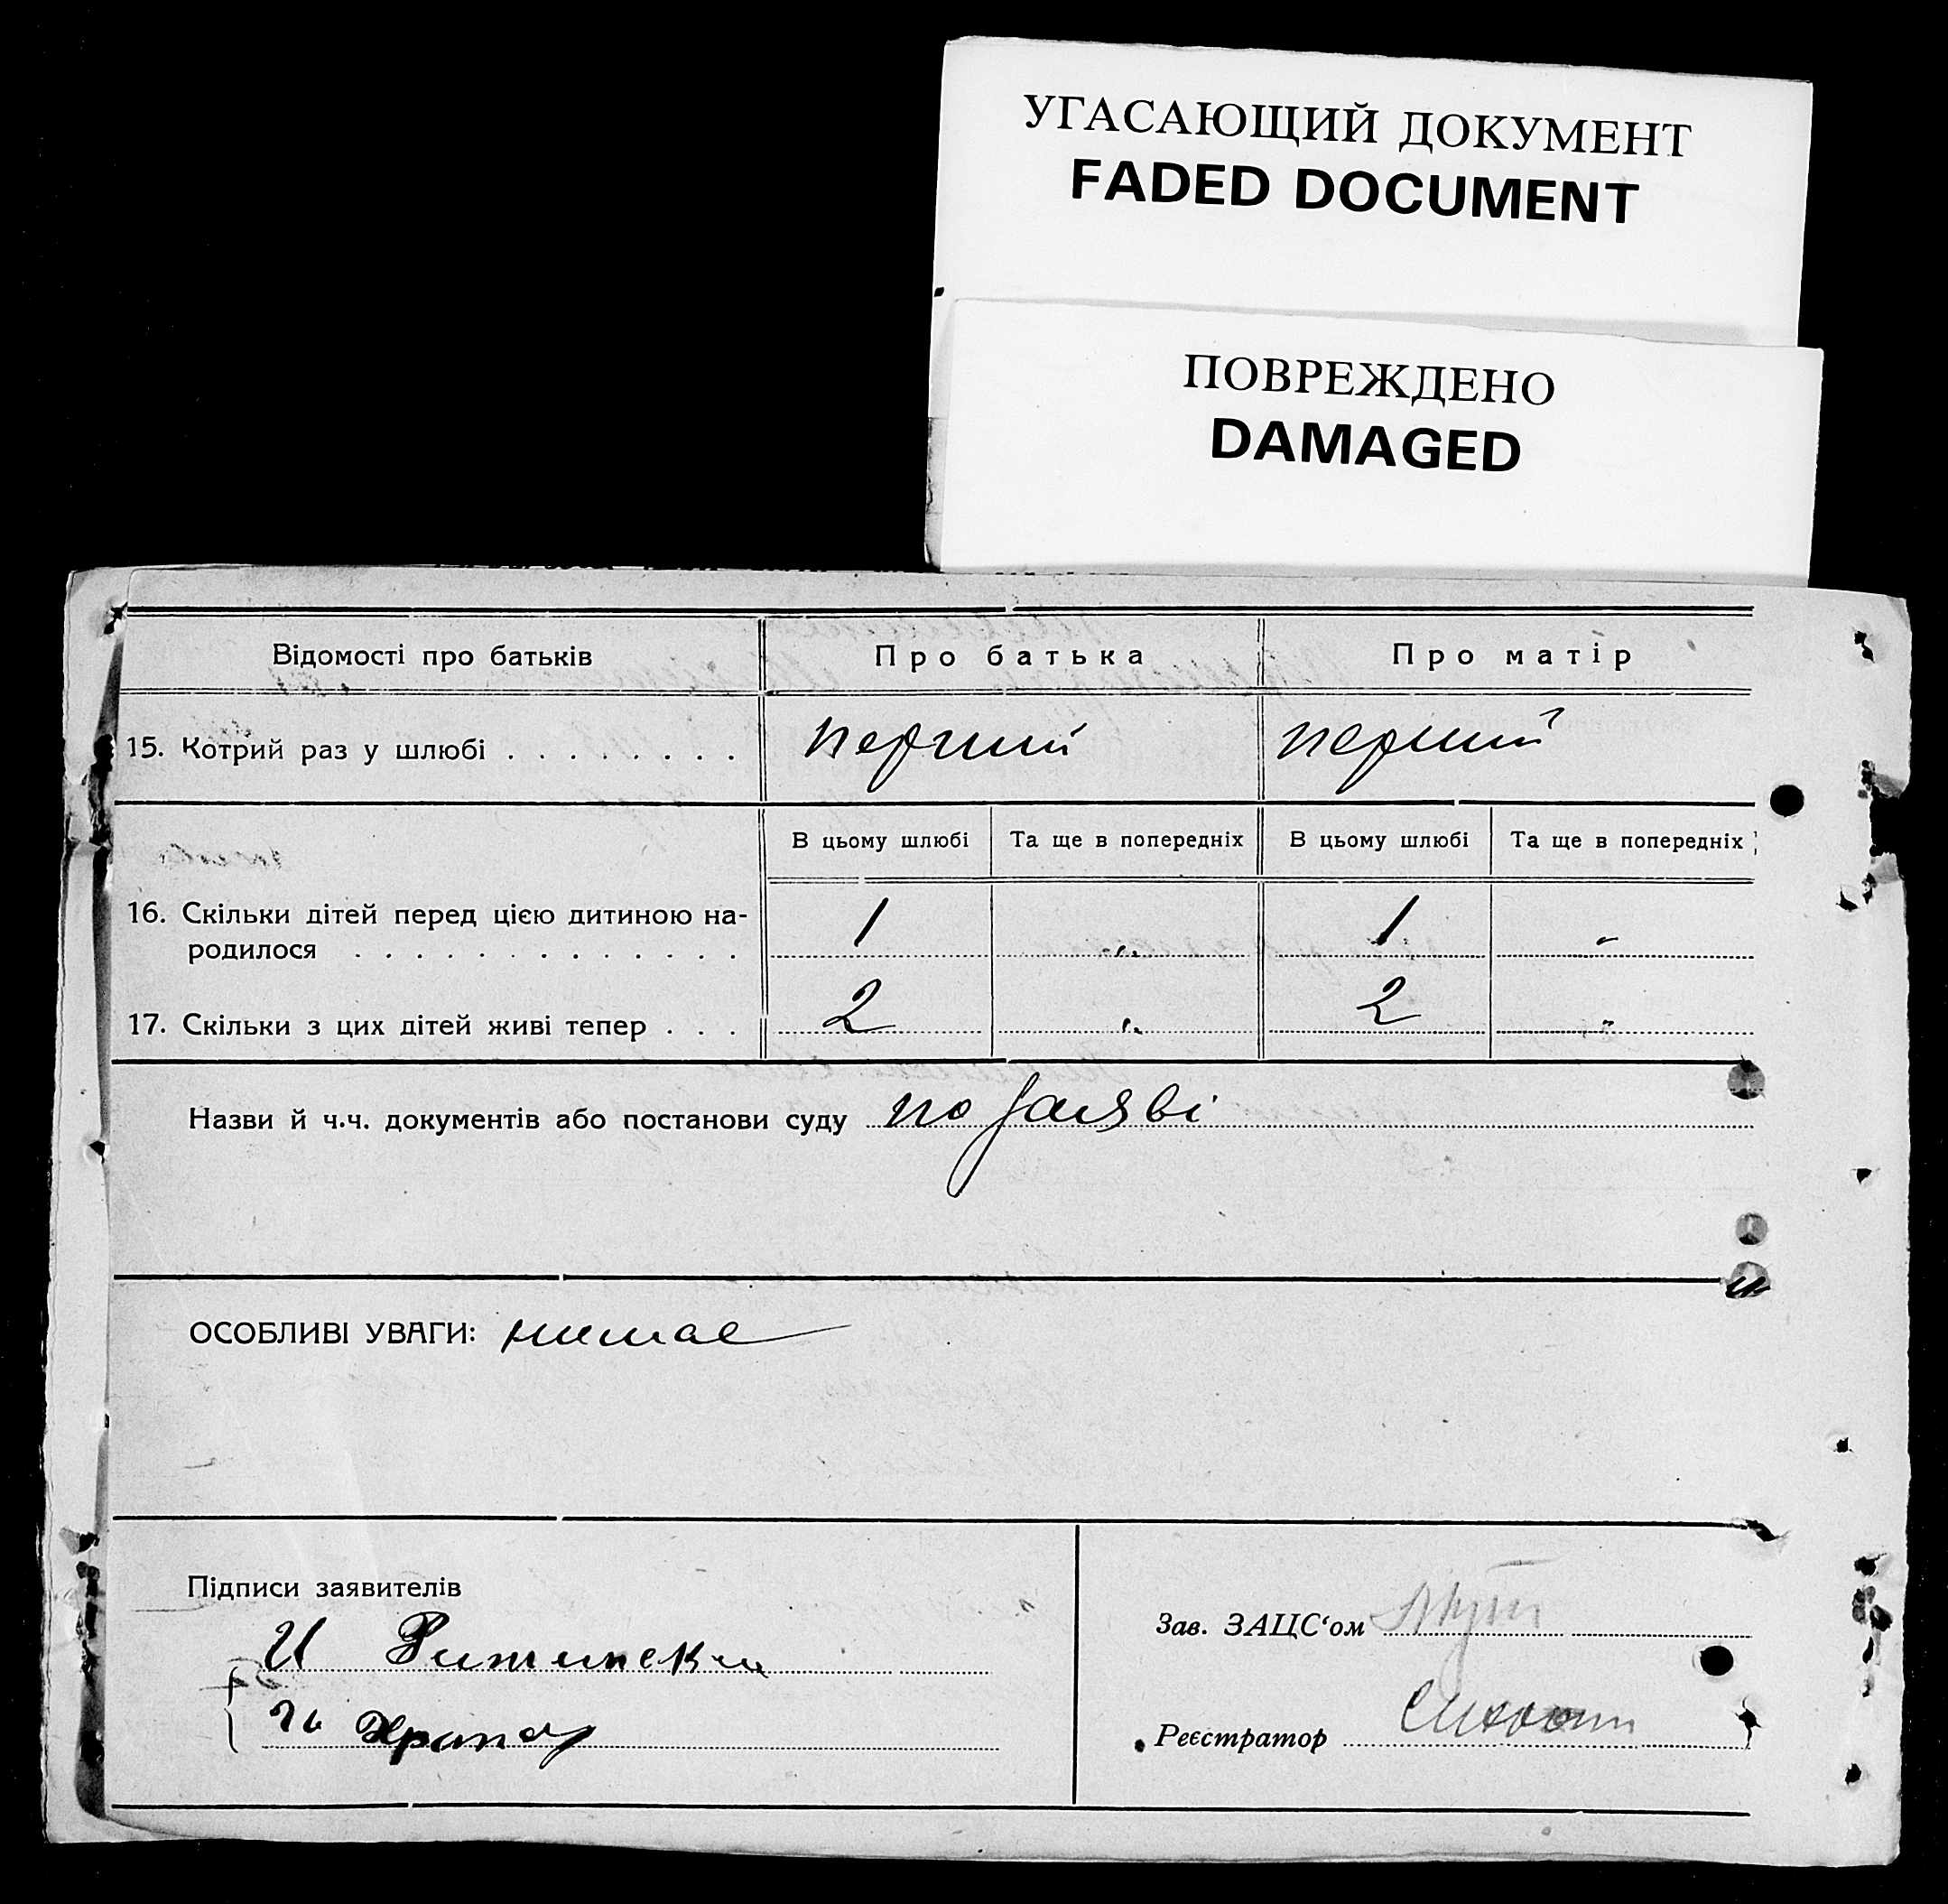 УГАСАЮЩИЙ ДОКУМЕНТ
FADED DOCUMENT
ПОВРЕЖДЕНО
DAMAGED
Відомості про батьків Про батька Про матір
15. Котрий раз у шлюбі . . . . . . . . перший перший
В цьому шлюбі Та ще в попередніх В цьому шлюбі Та ще в попередніх
16. Скільки дітей перед цією дитиною на-
родилося . . . . . . . . . . . . . 1 „ 1 „
17. Скільки з цих дітей живі тепер . . . 2 „ 2 „
Назви й ч.ч. документів або постанови суду по заяві
ОСОБЛИВІ УВАГИ: немае
Підписи заявителів
И
Зав. ЗАЦС‘ом
Реєстратор